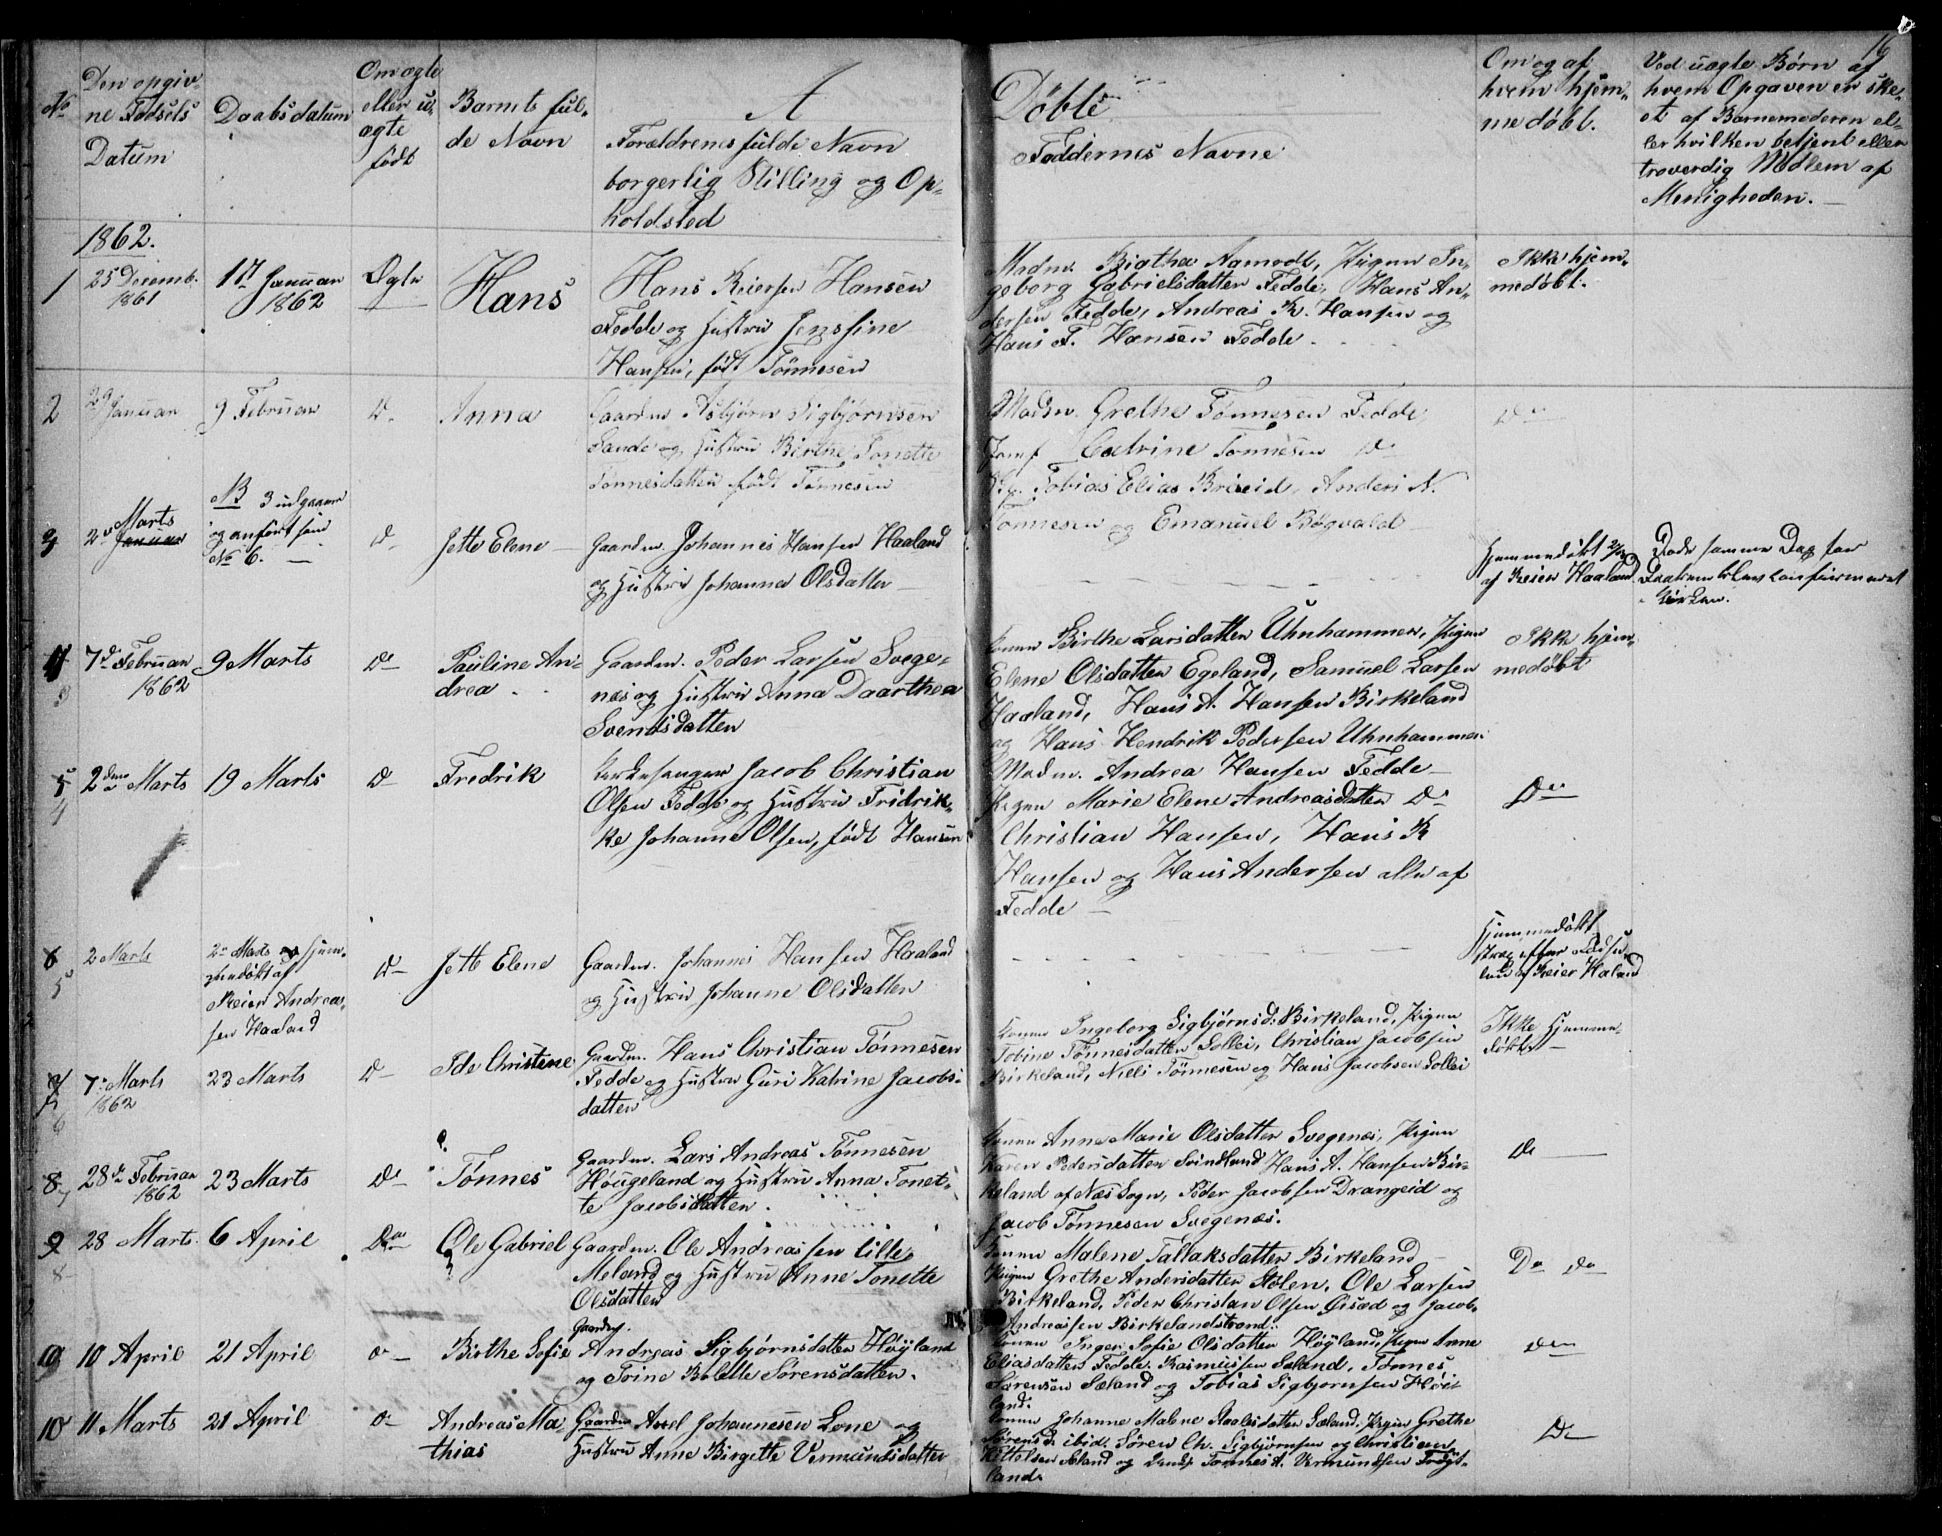 16
№
Den opgiv-
ne Fødsels
Datum
Daabsdatum
Om ægte
eller u-
ægte
født
Barnets ful-
de Navn
A
Forældrenes fulde Navn
borgerlig Stilling og Op-
holdsted
Døbte
Faddernes Navne
Om og af
hvem hjem-
medøbt.
Ved uægte Børn af
hvem Opgaven er ske-
et af Barnemoderen el-
ler hvilken betjent eller
troværdig Medlem af
Menigheden.
1862.
1
25 Decemb.
1861
1st Januar
1862
Ægte
Hans
Hans Reiersen Hansen
Fedde og Hustru Jensine
Hansen, født Tønnesen
Madm. Birthe Aamodt, Pigen In-
geborg Gabrielsdatter Fedde, Hans An-
dersen Fedde, Andreas R. Hansen og
Hans F. Hansen Fedde.
Ikke hjem-
medøbt.
2
29 Januar
9 Februar
Do
Anna
Gaardm. Asbjørn Sigbjørnsen
Sande og Hustru Birthe Tonette
Tønnesdatter født Tønnesen
Madm. Grethe Tønnesen Fedde
Jomf Catrine Tønnesen Do
Tobias Elias Brieid, Anders N.
Tønnesen og Emanuel Bøgvald
Do
3
2 Marts
Januar
NB 3 udgaaer
og anført paa
No 6.
Do
Jette Elene
Gaardm. Johannes Hansen Haaland
og Hustru Johanna Olsdatter
Hjemmedøbt 2/3
af Reier Haaland
Døde samme Dag før
Daaben blev confirmeret
i Kirken.
4
3
7de Februar
1862
9 Marts
Do
Pauline An-
drea
Gaardm. Peder Larsen Svege-
næs og Hustru Anna Daarthea
Svendsdatter
Konen Birthe Larsdatter Uhnhammer, Pigen
Elene Olsdatter Egeland, Samuel Larsen
Haaland, Hans A. Hansen Birkeland
og Hans Hendrik Pedersen Uhnhammer
Ikke hjem-
medøbt
5
4
2den Marts
19 Marts
Do
Fredrik
Kirkesanger Jacob Christian
Olsen Fedde og Hustru Fridrik-
ke Johanne Olsen, født Hansen
Madm. Andrea Hansen Fedde
Pigen Marie Elene Andreasdatter Do
Christian Hansen, Hans R
Hansen og Hans Andersen alle af
Fedde
Do
6
5
2 Marts
2 Marts og hjem-
medøbt af
Reier Andreas-
sen Haaland
Do
Jette Elene
Gaardm. Johannes Hansen Haaland
og Hustru Johanne Olsdatter
Hjemmedøbt
strax efter Fødse-
len af Reier Haland
7
6
7 Marts
1862
23 Marts
Do
Ide Christine
Gaardm. Hans Christian Tønnesen
Fedde og Hustru Guri Katrine Jacobs-
datter
Konen Ingeborg Sigbjørnsd: Birkeland, Pigen
Tobine Tønnesdatter Sollei, Christian Jacobsen
Birkeland, Niels Tønnesen og Hans Jacobsen Sollei
Ikke Hjemme-
døbt
8
7
28de Februar
1862
23 Marts
Do
Tønnes
Gaardm. Lars Andreas Tønnesen
Hougeland og Hustru Anna Tonet-
te Jacobsdatter.
Konen Anne Marie Olsdatter Svegenæs, Pigen
Karen Pedersdatter Svindland Hans A. Hansen Bir-
keland af Næs Sogn, Peder Jacobsen Drangeid og
Jacob Tønnesen Svegenæs.
Do
9
8
28 Marts
6 April
Do
Ole Gabriel
Gaardm. Ole Andreassen lille
Meland og Hustru Anne Tonette
Olsdatter
Konen Malene Tallaksdatter Birkeland
Pigen Grethe Andersdatter Stølen, Ole Larsen
Birkeland, Peder Christian Olsen Øisæd og Jacob
Andreassen Birkelandstrand.
Do Do
10
10 April
21 April
Do
Birthe Sofie
Gaardm.
Andreas Sigbjørnsdatter Høyland
og Toine Bolette Sørensdatter.
Konen Inger Sofie Olsdatter Høyland, Pigen Anne
Eliasdatter Fedde. Rasmussen Sæland, Tønnes
Sørensen Sæland og Tobias Sigbjørnsen Høi-
land.
Do
10
11 Marts
21 April
Do
Andreas Ma
thias
Gaardm Axel Johannesen Lone og
Hustru Anne Birgette Vermundsdatter
Konen Johanne Malene Roalsdatter Sæland, Pigen Grethe
Sørensd. ibid. Søren Ch. Sigbjørnsen og Christian
Kittelsen Sæland og Tønnes A. Vermundsen Frøyt-
land.
Do